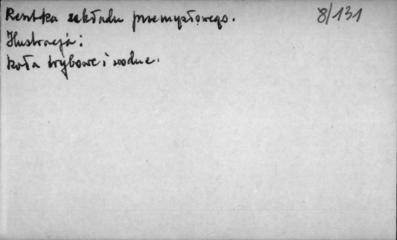 Resztka zakładu przemysłowego. 8/131
Ilustracja:
koła trybowe i wodne.